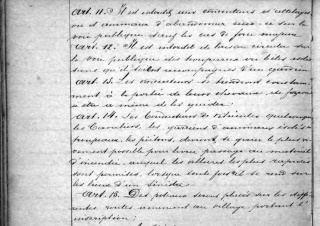 Art. 11. Il est interdit aux conducteurs d'attelages,
ou d'animaux d'abandonner ceux-ci sur la
voie publique sauf les cas de force majeure
Art. 12. Il est interdit de laisser circuler sur
la voie publique des troupeaux ou bêtes isolées
sans qu'il soient accompagnés d'un gardien
Art. 13. Les conducteurs se tiendront constam-
ment à la portée de leurs chevaux, de façon
à être à même de les guider.
Art. 14. Les Conducteurs de véhicules quelconques
les Cavaliers, les gardiens d'animaux isolés
troupeaux, les piétons, devront se garer le plus
vement possible pour livrer passage au matériel
d'incendie auquel les allures les plus rapides
sont permises, lorsque se rend sur
les lieux d'un sinistre.
Art. 15. Des poteaux seront placés sur les diffé-
rentes routes amenant au village portant l'
inscription: